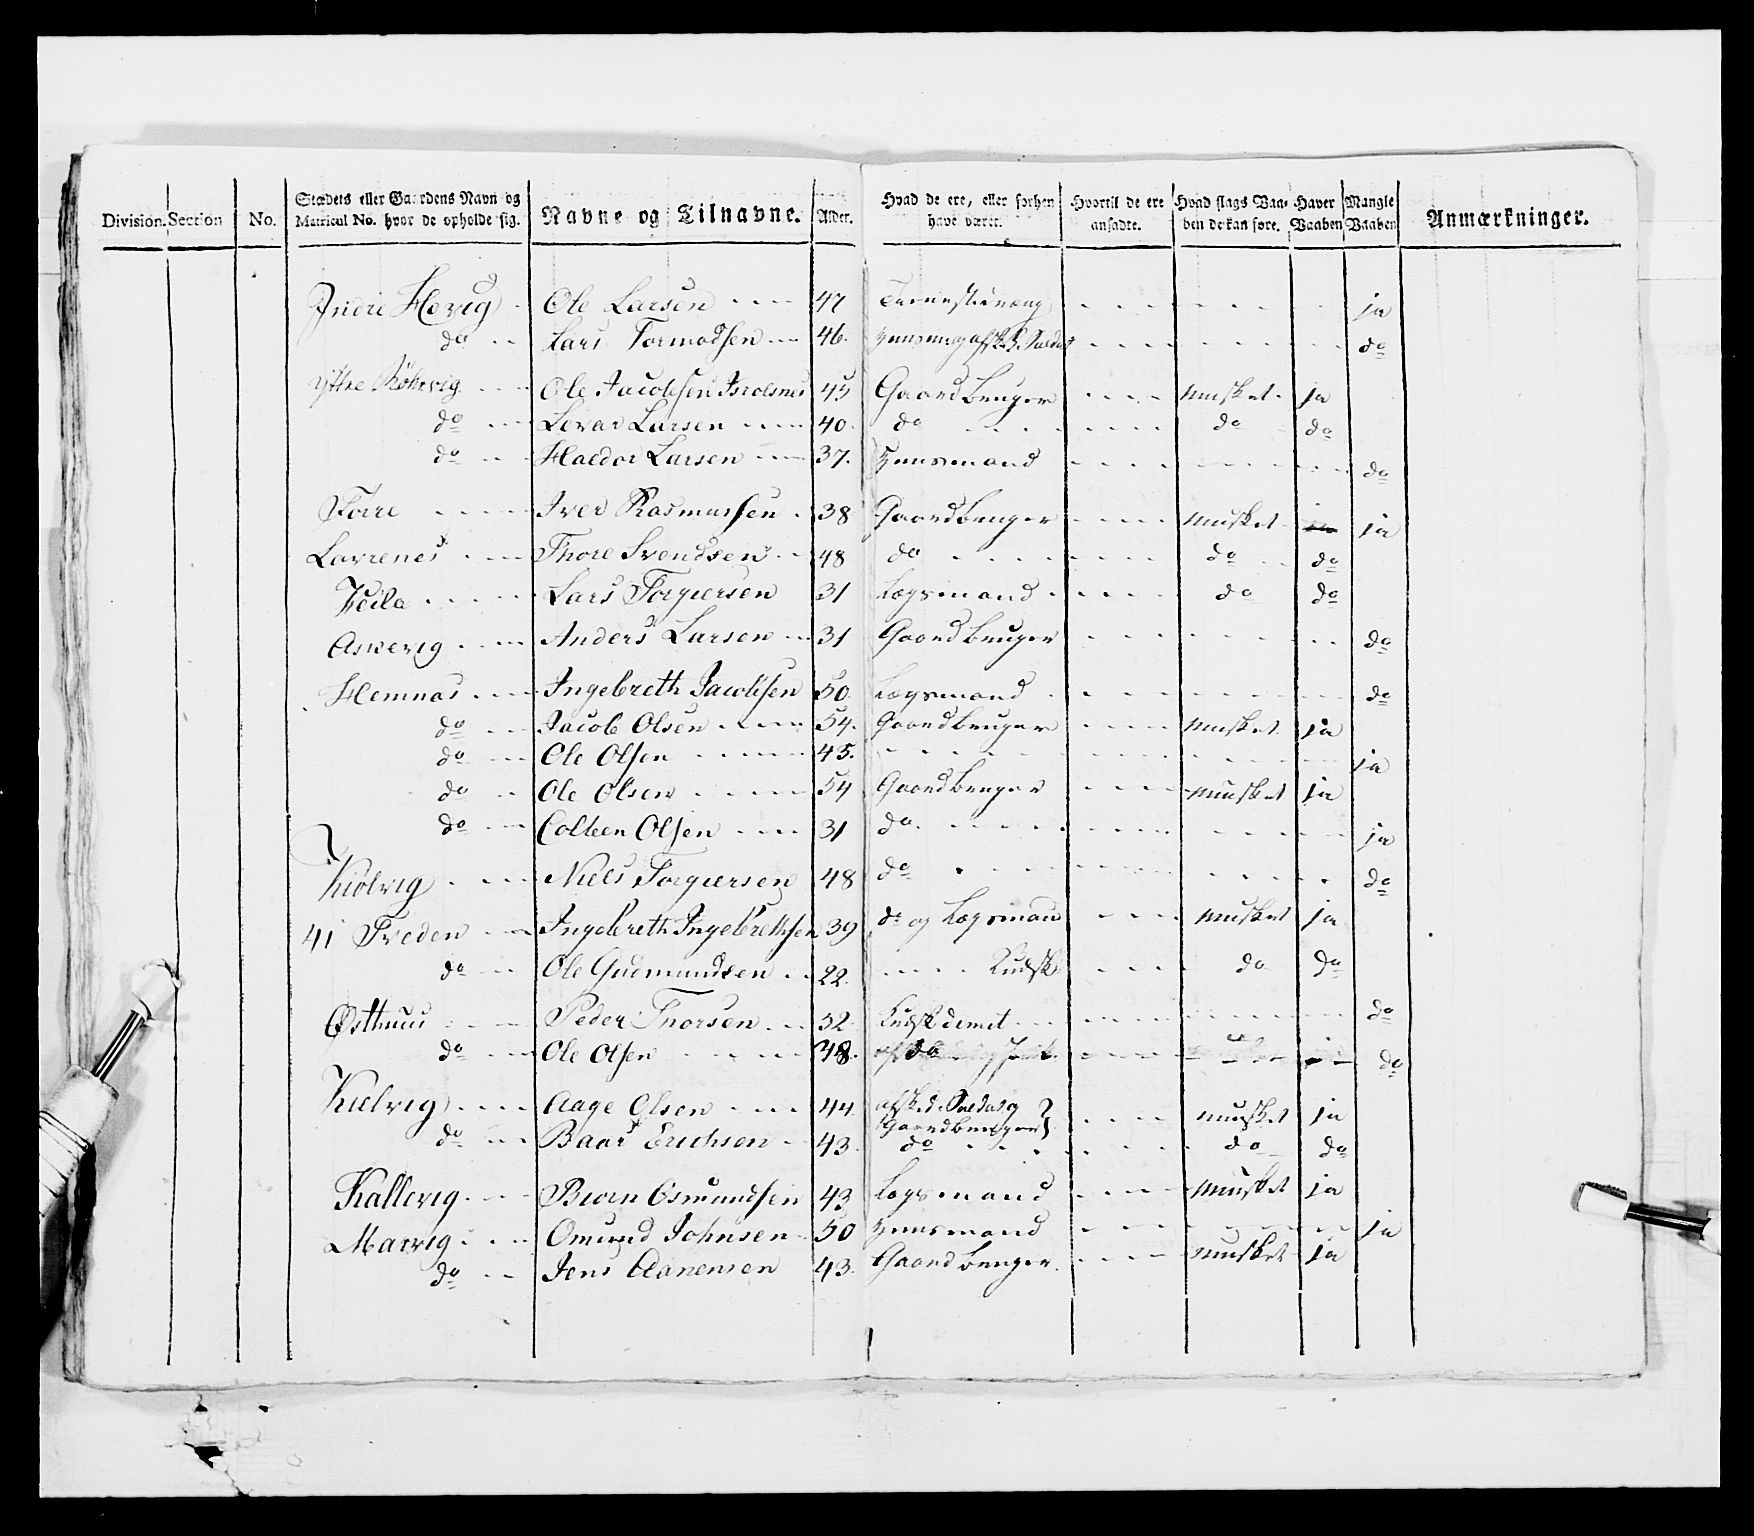 Division. Section No. Stædets eller Gaardens Navn og Matricul No. hvor de opholde sig. Navne og Tilnavne. Alder. Hvad de ere, eller forhen have været. Hvortil de ere ansadte. Hvad slags Vaaben de kan føre. Haver Vaaben Mangle Vaaben Anmærkninger.
Indre Hevig Ole Larsen 47 ja
do Lars Tormodsen 46. do
Ole Jacobsen 45 Gaardbruger musket ja
do Larsen 40. do do do
do Haldor Larsen 37. Huusmand do
Iver Rasmussen 38 Gaardbruger musket ja
Thore Svendsen 48 do do do
Lars Torgiersen 31 Lægsmand do do
Anders Larsen 31 Gaardbruger do
Hemnas Ingebreth Jacobsen 50. Lægsmand do
do Jacob Olsen 54. Gaardbruger musket ja
do Ole Olsen 45. ja
do Ole Olsen 54 Gaardbruger musket ja
do Olsen 31 do ja
Kiolvig Niels Torgiersen 48 do do
41 Treden Ingebreth Ingebrethsen 39 do og Lægsman musket ja
do Ole Gudmundsen 22. do do
Østhuus Peder Thorsen 32 do
do Ole Olsen 38. do
Kielvig Aage Olsen 44 afsked. Soldat og Gaardbruger musket ja
do Baar Erichsen 43. do do do
Kallevig Biørn Osmundsen 43 Lægsmand musket ja
Marvig Omund Johnsen 50 Huusmand ja
do Jens Aanensen 43. Gaardbruger musket ja